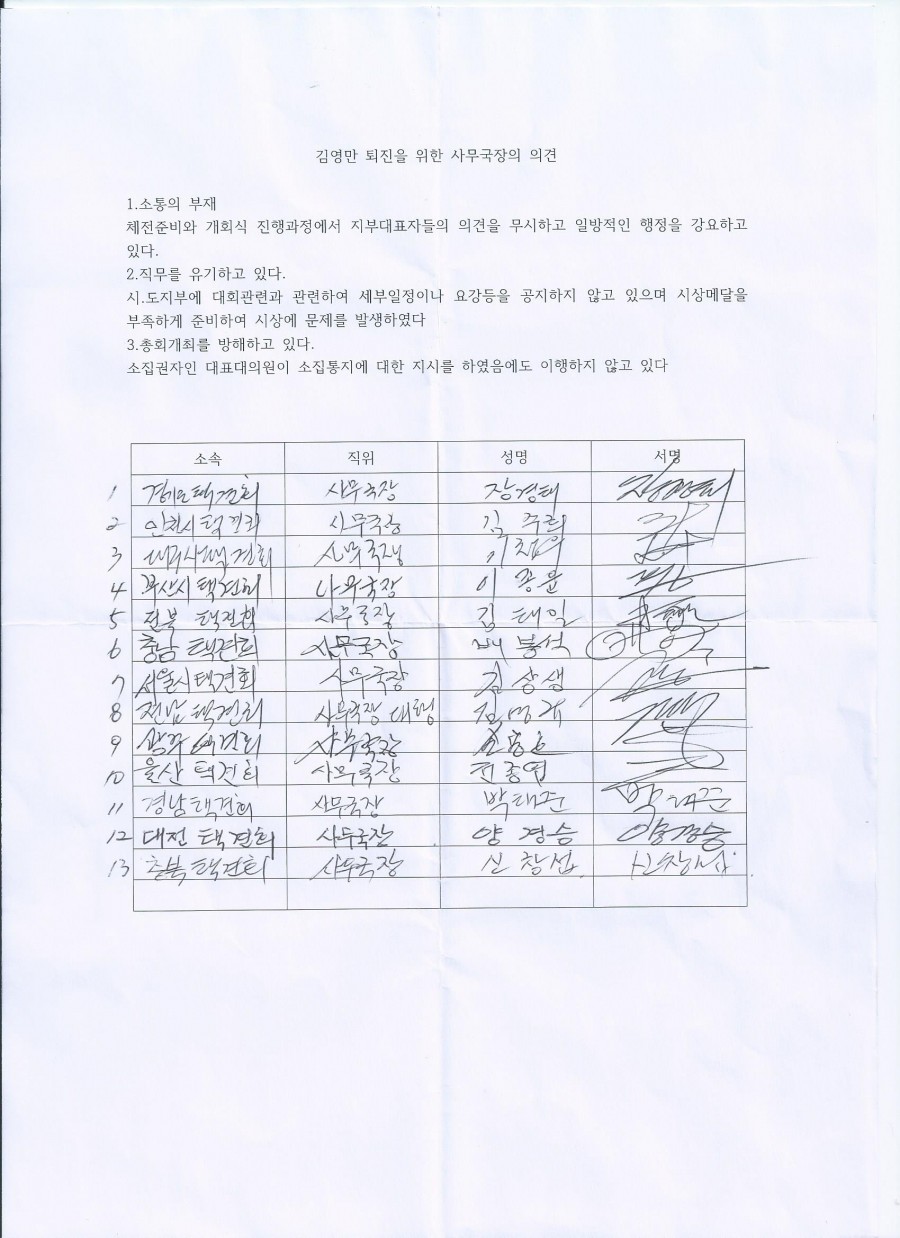 김영만 퇴진을 위한 사무국장의 의견
1.소통의 부재
체전준비와 개회식 진행과정에서 지부대표자들의 의견을 무시하고 일방적인 행정을 강요하고
있다.
2.직무를 유기하고 있다.
시.도지부에 대회관련과 관련하여 세부일정이나 요강등을 공지하지 않고 있으며 시상메달을
부족하게 준비하여 시상에 문제를 발생하였다
3.총회개최를 방해하고 있다.
소집권자인 대표대의원이 소집통지에 대한 지시를 하였음에도 이행하지 않고 있다
소속 직위 성명 서명
1 경기도택견회 사무국장 장경태
2 인천시택견회 사무국장 김
3 택견회 사무국장
4 부산시택견회 사무국장 이
5 전북 택견회 사무국장 김태일
6 충남 택견회 사무국장 봉석
7 서울시택견회 사무국장 김상생
8 전남택견회 사무국장 대행
9 광주 택견회 사무국장
10 울산 택견회 사무국장 전종엽
11 경남택견회 사무국장 박태준 박태준
12 대전 택견회 사무국장 양경승
13 충북택견회 사무국장 신창섭 신창섭